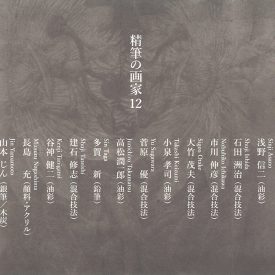 精筆の画家 12
Shinji Asano
浅野 信二（油彩）
Shuji Ishida
石田 洲治（混合技法）
Nobuhiko Ichikawa
市川 伸彦（混合技法）
Sigeo Otake
大竹 茂夫（混合技法）
Takashi Koizumi
小泉 孝司（油彩）
Yu Sugawara
菅原 優（混合技法）
Junichiro Takamatsu
高松 潤一郎（油彩）
Sin Taga
多賀 新（鉛筆）
Shuji Tateishi
建石 修志（混合技法）
Kenji Tanigami
谷神 健二（油彩）
Mitsuru Nagashima
長島 充（顔料／アクリル）
Jin Yamamoto
山本 じん（銀筆／木炭）